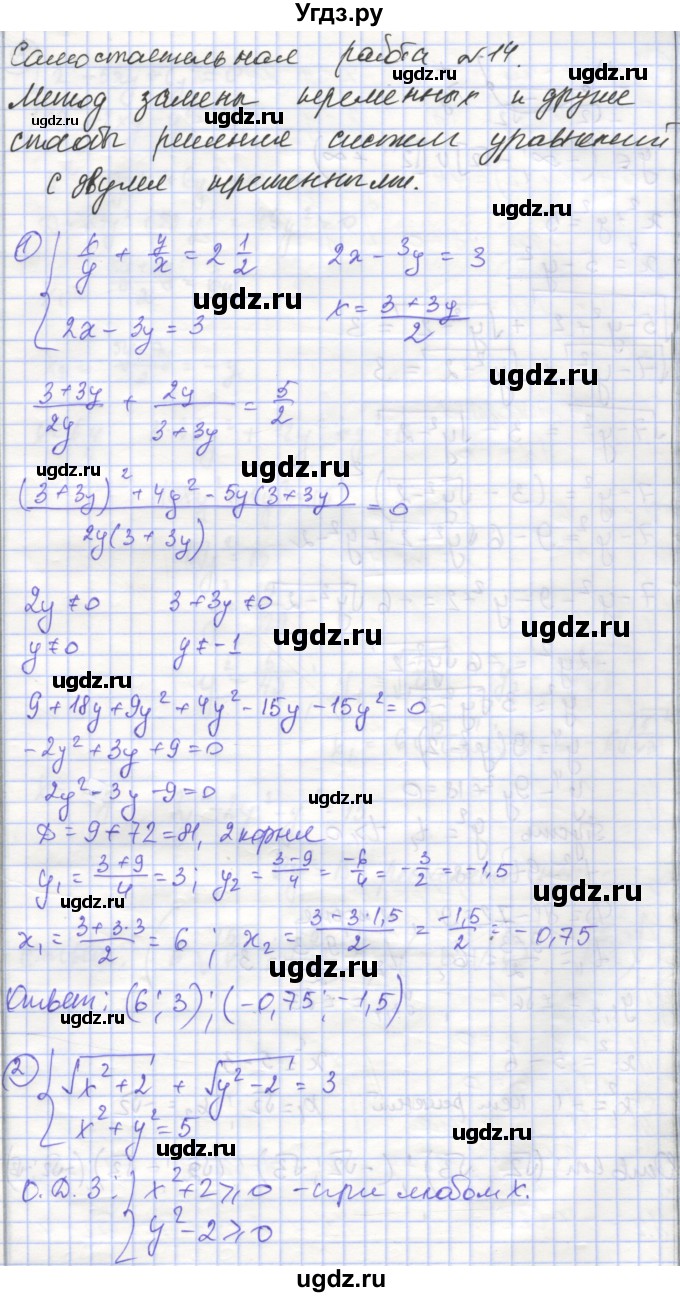 Угдз.ру
Самостоятельная работа №14.
Метод замены переменных и другие
способы решения систем уравнений
с двумя переменными.
① { x/y + y/x = 2 1/2    2x - 3y = 3
2x - 3y = 3    x = (3+3y)/2
(3+3y)/2y + 2y/(3+3y) = 5/2
((3+3y)² + 4y² - 5y(3+3y))/(2y(3+3y)) = 0
2y ≠ 0    3+3y ≠ 0
y ≠ 0    y ≠ -1
9 + 18y + 9y² + 4y² - 15y - 15y² = 0
-2y² + 3y + 9 = 0
2y² - 3y - 9 = 0
D = 9 + 72 = 81, 2 корня
y₁ = (3+9)/4 = 3; y₂ = (3-9)/4 = -6/4 = -3/2 = -1,5
x₁ = (3+3·3)/2 = 6; x₂ = (3-3·1,5)/2 = -1,5/2 = -0,75
Ответ: (6; 3); (-0,75; -1,5)
② { √(x²+2) + √(y²-2) = 3
x² + y² = 5
О.Д.З: { x²+2 ⩾ 0 - при любом x.
y² - 2 ⩾ 0
ugdz.ru